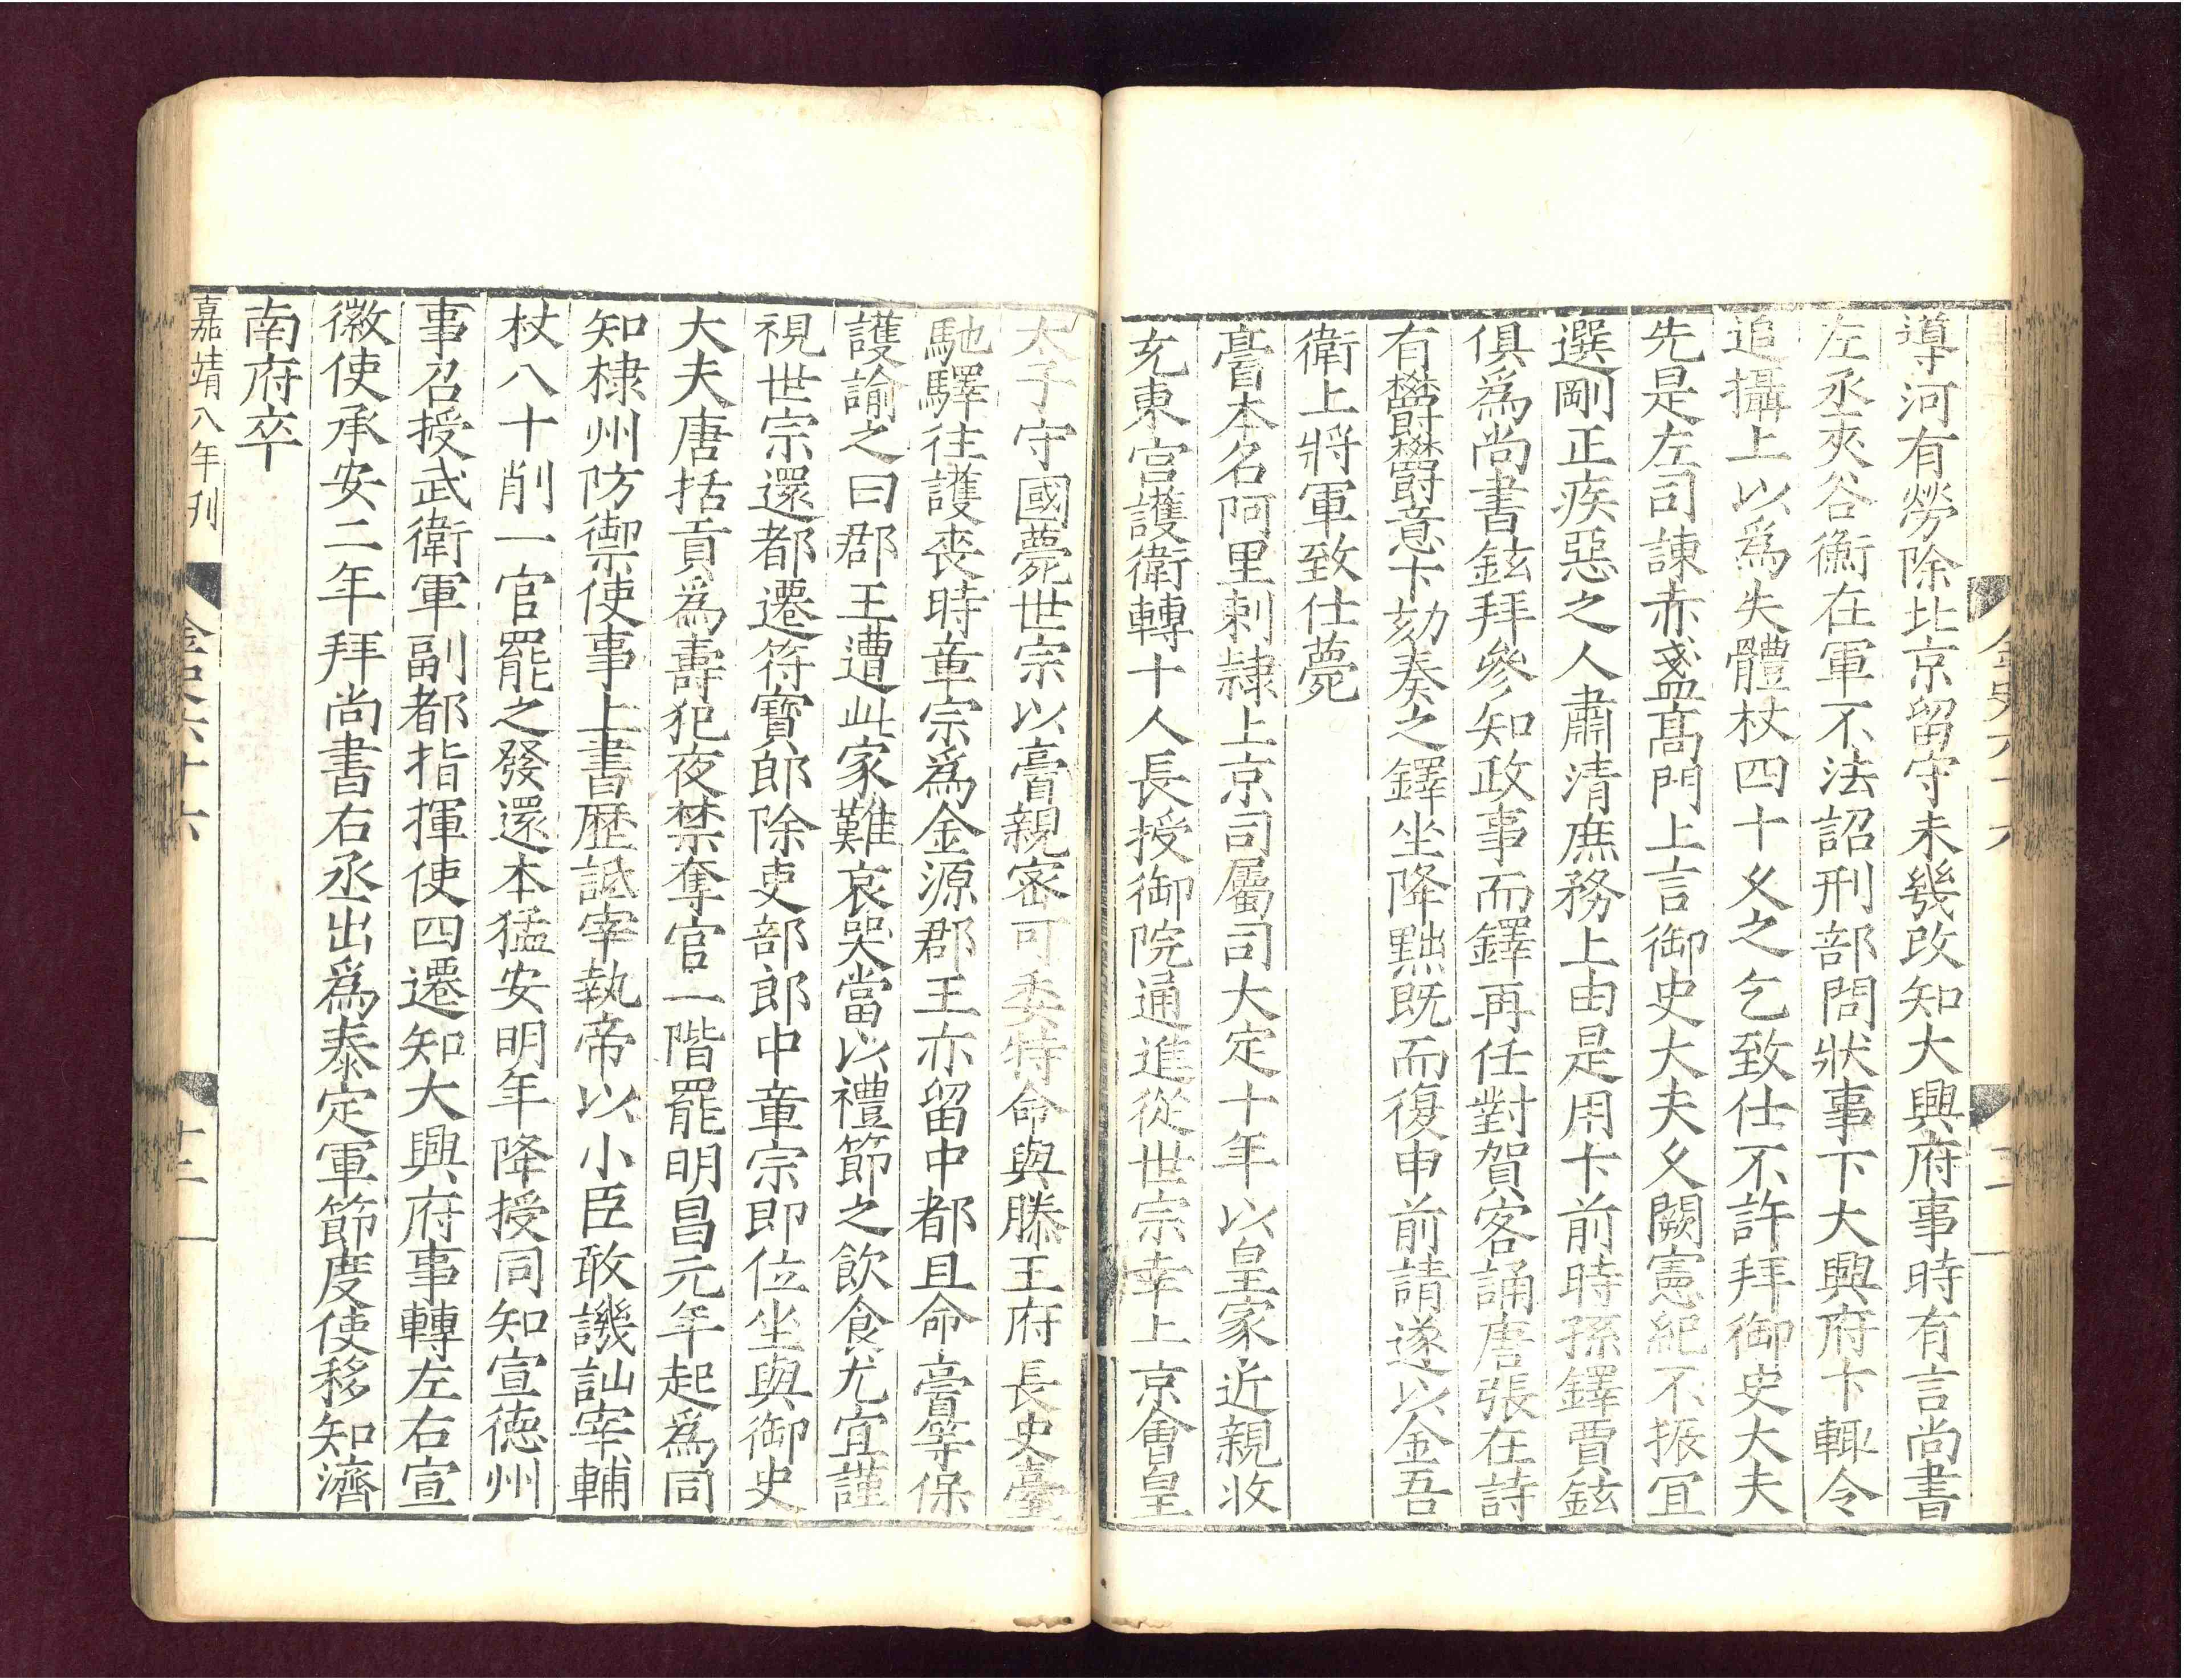 導河有勞除北京留守未幾改知大興府事時有言尚書
左丞夾谷衡在軍不法詔刑部問狀事下大興府卞輒令
追攝上以爲失體杖四十久之乞致仕不許拜御史大夫
先是左司諫赤盞高門上言御史大夫久闕憲紀不振宜
選剛正疾惡之人肅清庶務上由是用卞前時孫鐸賈鉉
俱爲尚書鉉拜參知政事而鐸再任對賀客誦唐張在詩
有欝欝意卞劾奏之鐸坐降黜既而復申前請遂以金吾
衛上將軍致仕薨
膏本名阿里剌隸上京司屬司大定十年以皇家近親收
充東宫護衛轉十人長授御院通進從世宗幸上京會皇
太子守國薨世宗以膏親密可委特命與滕王府長史臺
馳驛往護丧時章宗爲金源郡王亦留中都且命膏等保
護諭之曰郡王遭此家難哀哭當以禮節之飲食尤宜謹
視世宗還都遷符寶郎除吏部郎中章宗即位坐與御史
大夫唐括貢爲壽犯夜禁奪官一階罷明昌元年起爲同
知棣州防禦使事上書歴詆宰執帝以小臣敢譏訕宰輔
杖八十削一官罷之發還本猛安明年降授同知宣德州
事召授武衛軍副都指揮使四遷知大興府事轉左右宣
徽使承安二年拜尚書右丞出爲泰定軍節度使移知濟
南府卒
嘉靖八年刊
金史六十六
十二